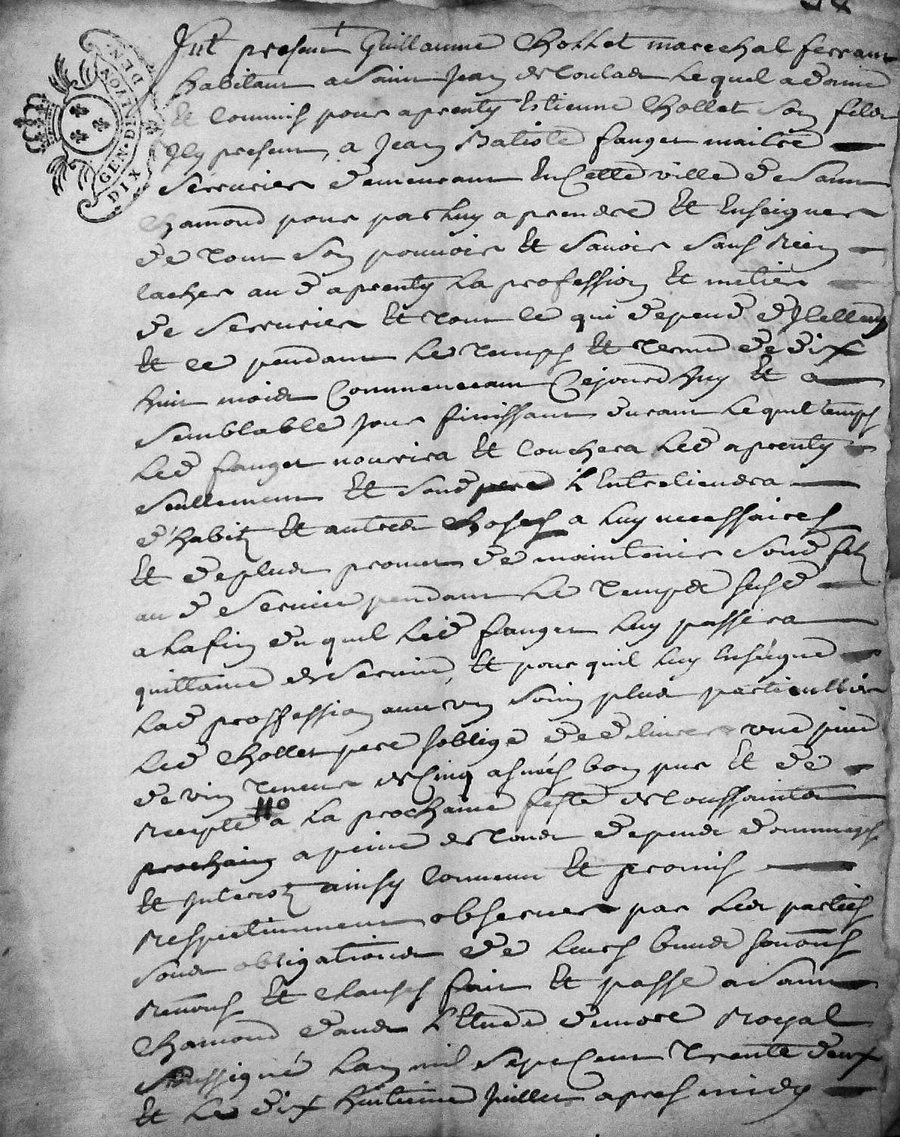 GEN. D. LION
DIX DEN
Fut present Guillaume Chollet marechal ferrant
habitant a Saint Jean de toulas lequel a donné
Et Commis pour aprenty Estienne Chollet son fils
Jly present, a Jean Batiste fanget maitre
Serrurier demeurant En Cette ville de Saint
Chamond pour par luy aprendre Et Enseigner
de tout son pouvoir Et Savoir sans rien
cacher aud aprenty la profession Et metier
de Serrurier Et tout ce qui depend d'Icelluy
Et ce pendant le temps Et terme de dix
huit mois Commencant Cejourdhuy Et a
semblable jour finissant durant lequel temps
Led fanget nourrira Et Couchera led aprenty
Seullement Et sond pere l'Entretiendra
d'habitz Et autres Choses a luy necessaires
Et deplus promet de maintenir sond filz
aud Service pendant le temps susd
a la fin duquel led fanget luy passera
quittance de Service, Et pour quil luy Enseigne
lad proffession avec un Soin plus particullier
led Chollet pere soblige de delivrer une piece
de vin teneur de Cinq asnées bon pur Et de
recepte a la prochaine feste de toussaintz
prochain a peine de tous depens dommages
Et Interetz ainsy Convenu Et promis
respectivement observer par les parties
sous obligations de leurs biens soumons
renons Et clauses fait Et passé a Saint
Chamond dans l'Etude du nore Royal
Soussigné lan mil sept cent trente deux
Et le dix huitieme Juillet apres midy